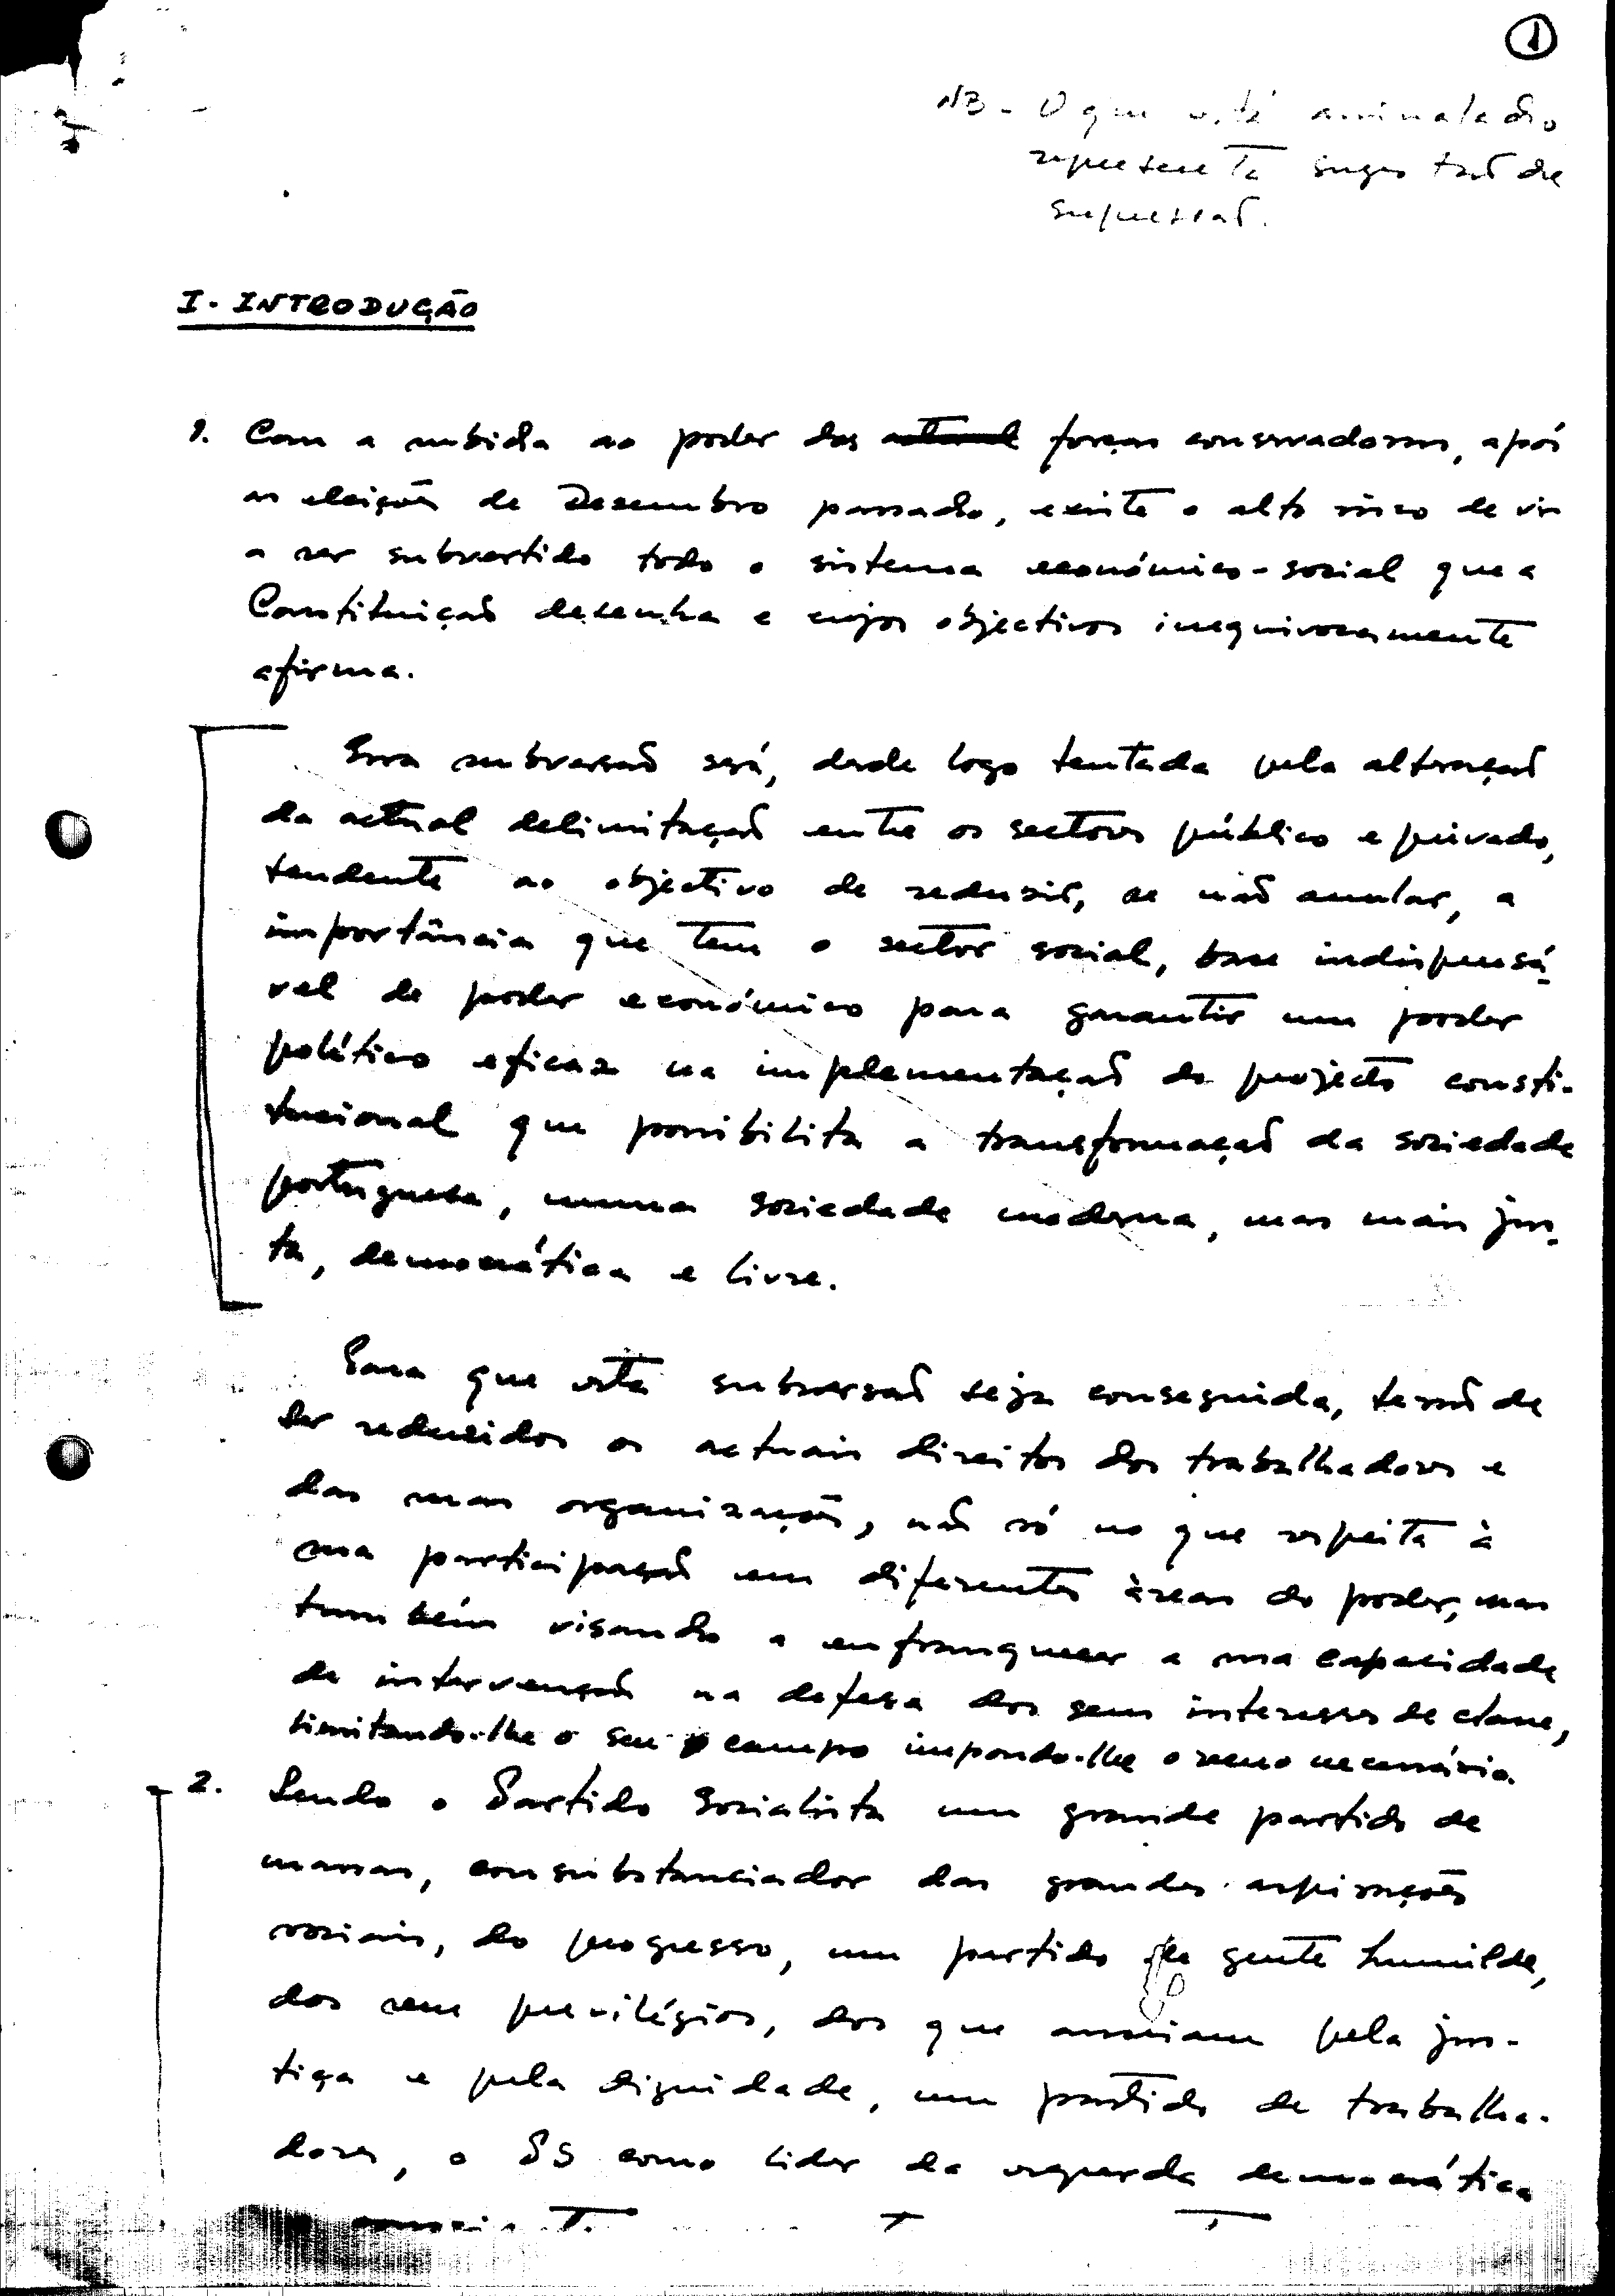 1
NB - O que está assinalado
representa sugestão de
supressão.
I. INTRODUÇÃO
1. Com a subida ao poder das forças conservadoras, após
as eleições de Dezembro passado, existe o alto risco de vir
a ser subvertido todo o sistema económico-social que a
Constituição desenha e cujos objectivos inequivocamente
afirma.
Essa subversão será, desde logo tentada pela alteração
da actual delimitação entre os sectores público e privado,
tendente ao objectivo de reduzir, se não anular, a
importância que tem o sector social, base indispensá-
vel de poder económico para garantir um poder
político eficaz na implementação do projecto consti-
tucional que possibilita a transformação da sociedade
portuguesa, numa sociedade moderna, mas mais jus-
ta, democrática e livre.
Para que esta subversão seja conseguida, terão de
ser reduzidos os actuais direitos dos trabalhadores e
das suas organizações, não só no que respeita à
sua participação em diferentes áreas do poder, mas
também visando a enfraquecer a sua capacidade
de intervenção na defesa dos seus interesses de classe,
limitando-lhe o seu campo impondo-lhe o recuo necessário.
2. Sendo o Partido Socialista um grande partido de
massas, consubstanciador das grandes aspirações
sociais, do progresso, um partido de gente humilde,
dos sem previlégios, dos que anseiam pela jus-
tiça e pela dignidade, um partido de trabalha-
dores, o PS como lider da esquerda democrática